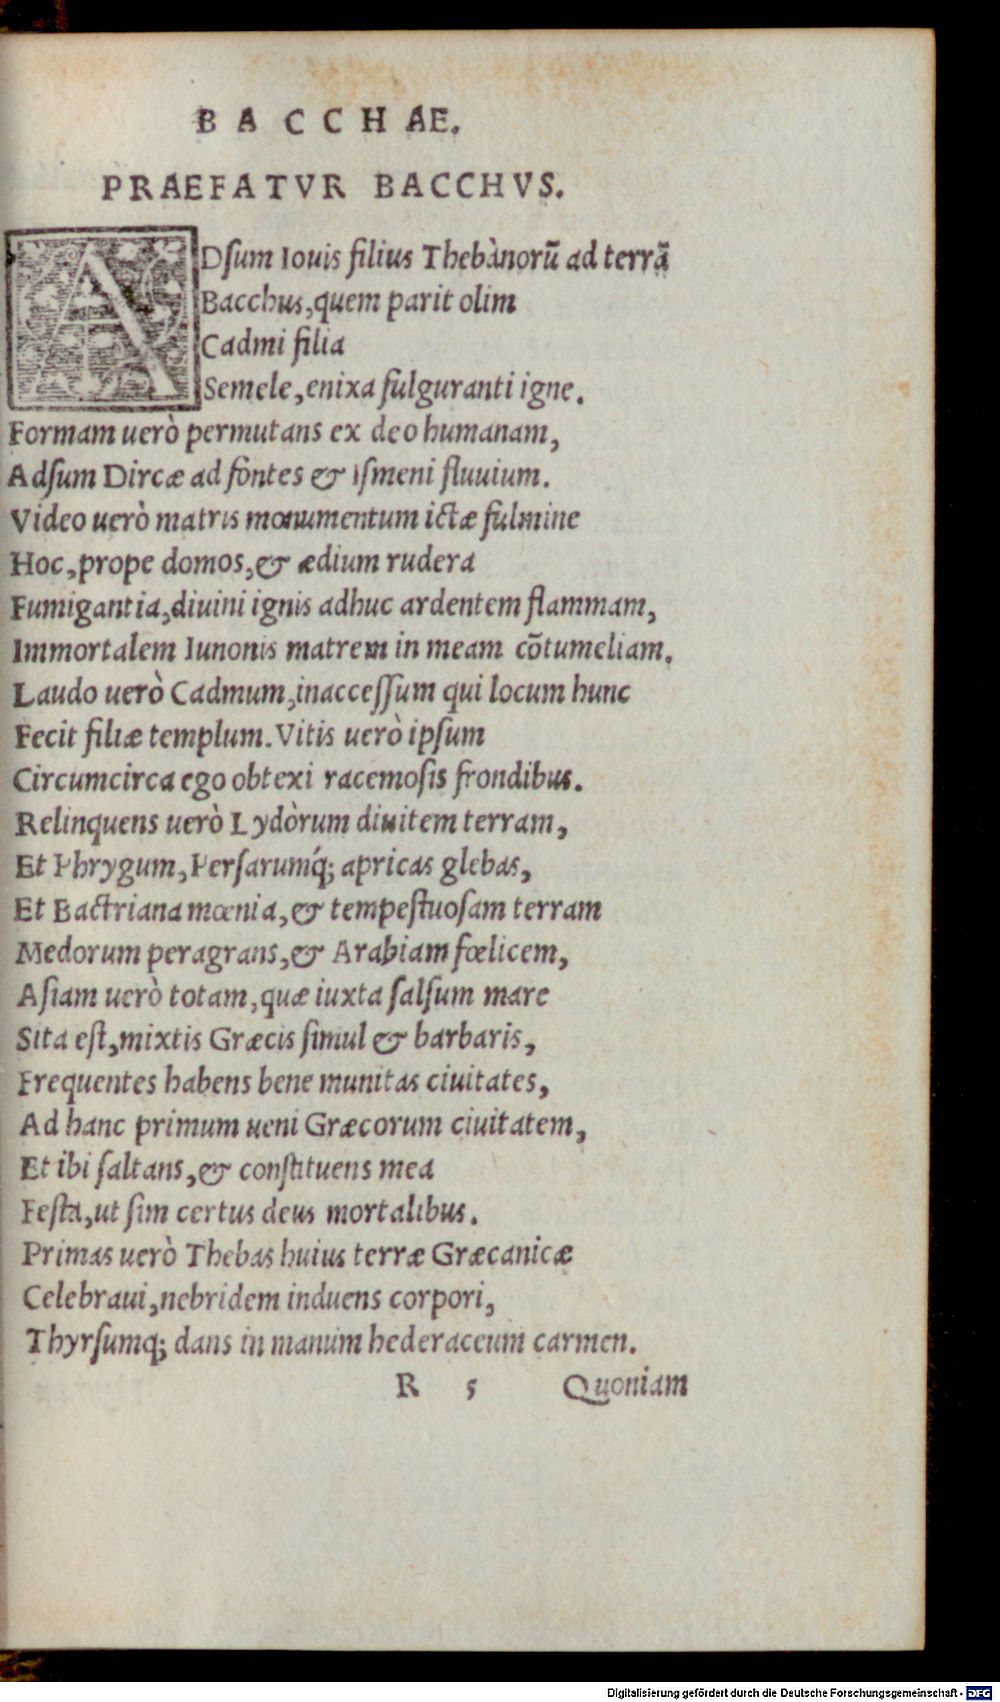 BACCHAE.
PRAEFATVR BACCHVS.
ADſum Iouis filius Thebànorū ad terrā
Bacchus, quem parit olim
Cadmi filia
Semele, enixa fulguranti igne.
Formam uerò permutans ex deo humanam,
Adſum Dircæ ad fontes & Iſmeni fluuium.
Video uerò matris monumentum ictæ fulmine
Hoc, prope domos, & ædium rudera
Fumigantia, diuini ignis adhuc ardentem flammam,
Immortalem Iunonis matrem in meam cōtumeliam.
Laudo uerò Cadmum, inacceſſum qui locum hunc
Fecit filiæ templum. Vitis uerò ipſum
Circumcirca ego obtexi racemoſis frondibus.
Relinquens uerò Lydòrum diuitem terram,
Et Phrygum, Perſarumq́; apricas glebas,
Et Bactriana mœnia, & tempeſtuoſam terram
Medorum peragrans, & Arabiam fœlicem,
Aſiam uerò totam, quæ iuxta ſalſum mare
Sita eſt, mixtis Græcis ſimul & barbaris,
Frequentes habens bene munitas ciuitates,
Ad hanc primum ueni Græcorum ciuitatem,
Et ibi ſaltans, & conſtituens mea
Feſta, ut ſim certus deus mortalibus.
Primas uerò Thebas huius terræ Græcanicæ
Celebraui, nebridem induens corpori,
Thyrſumq; dans in manum hederaceum carmen.
R 5 Quoniam
Digitalisierung gefördert durch die Deutsche Forschungsgemeinschaft - DFG